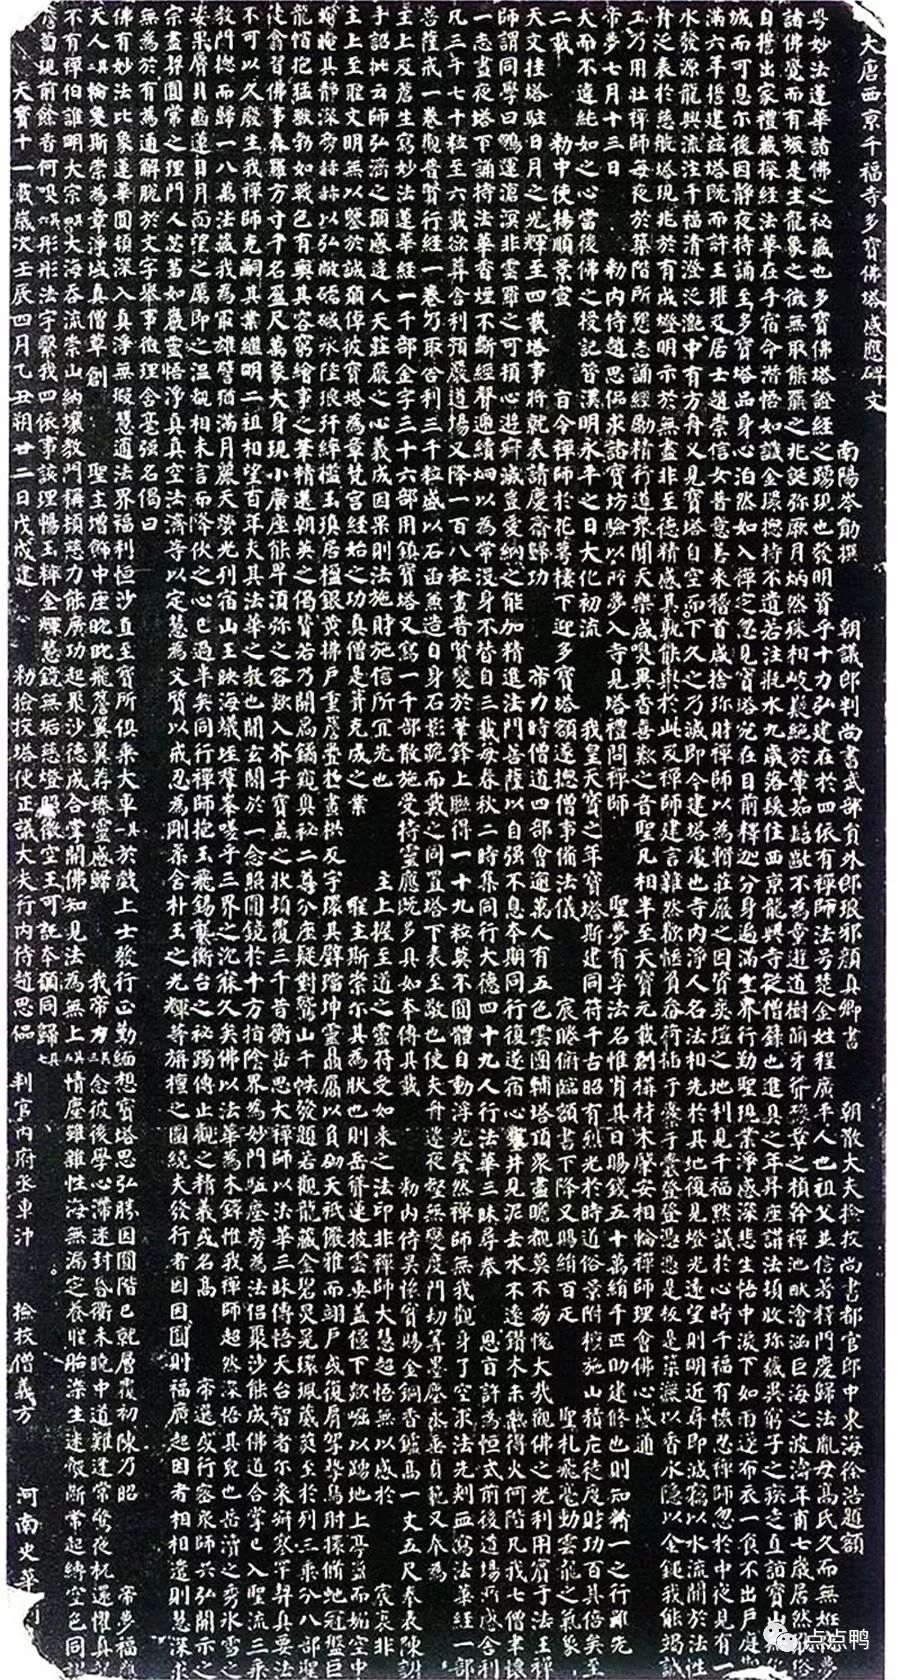 大唐西京千福寺多寶佛塔感應碑文 南陽岑勛撰 朝議郎判尚書武部員外郎琅邪顏真卿書 朝散大夫撿挍尚書都官郎中東海徐浩題額
粵妙法蓮華諸佛之秘藏也多寶佛塔證經之踊現也發明資乎十力弘建在於四依有禪師法号楚金姓程廣平人也祖父並信著釋門慶歸法胤母高氏久而無姙夜夢
諸佛覺而有娠是生龍象之徵無取熊羆之兆誕弥厥月炳然殊相岐嶷絕於葷茹髫齔不為童遊道樹萌牙聳豫章之楨榦禪池畎澮涵巨海之波濤年甫七歲居然猒俗
自誓出家禮藏探經法華在手宿命潛悟如識金環揔持不遺若注瓶水九歲落髮住西京龍興寺從僧籙也進具之年昇座講法頓收珍藏異窮子之疾走直詣寶山無化
城而可息尒後因靜夜持誦至多寶塔品身心泊然如入禪定忽見寶塔宛在目前釋迦分身遍滿空界行勤聖現業淨感深悲生悟中淚下如雨遂布衣一食不出戶庭期
滿六年誓建茲塔既而許王瓘及居士趙崇信女普意善來稽首咸捨珍財禪師以為輯莊嚴之因資爽塏之地利見千福默議於心時千福有懷忍禪師忽於中夜見有一
水發源龍興流注千福清澄泛灔中有方舟又見寶塔自空而下久之乃滅即今建塔處也寺內淨人名法相先於其地復見燈光遠望則明近尋即滅竊以水流開於法性
舟泛表於慈航塔現兆於有成燈明示於無盡非至德精感其孰能與於此及禪師建言雜然歡愜負畚荷插于橐于囊登登憑憑是板是築灑以香水隱以金鎚我能竭誠
工乃用壯禪師每夜於築階所懇志誦經勵精行道眾聞天樂咸嗅異香喜歎之音聖凡相半至天寶元載創構材木肇安相輪禪師理會佛心感通
帝夢七月十三日 勑內侍趙思侃求諸寶坊驗以所夢入寺見塔禮問禪師 聖夢有孚法名惟肖其日賜錢五十萬絹千匹助建修也則知精一之行雖先
天而不違純如之心當後佛之授記昔漢明永平之日大化初流 我皇天寶之年寶塔斯建同符千古昭有烈光於時道俗景附檀施山積庀徒度財功百其倍矣至
二載 勑中使楊順景宣 旨令禪師於花萼樓下迎多寶塔額遂揔僧事備法儀 宸睠俯臨額書下降又賜絹百疋 聖札飛毫動雲龍之氣象
天文挂塔駐日月之光輝至四載塔事將就表請慶齋歸功 帝力時僧道四部會逾萬人有五色雲團輔塔頂眾盡瞻覩莫不崩悅大哉觀佛之光利用賓于法王禪
師謂同學曰鵬運滄溟非雲羅之可頓心遊寂滅豈愛網之能加精進法門菩薩以自強不息本期同行復遂宿心鑿井見泥去水不遠鑽木未熱得火何階凡我七僧聿懷
一志晝夜塔下誦持法華香煙不斷經聲遞續炯以為常沒身不替自三載每春秋二時集同行大德四十九人行法華三昧尋奉 恩旨許為恒式前後道場所感舍利
凡三千七十粒至六載欲葬舍利預嚴道場又降一百八粒畫普賢變於筆鋒上聯得一十九粒莫不圓體自動浮光瑩然禪師無我觀身了空求法先刺血寫法華經一部
菩薩戒一卷觀普賢行經一卷乃取舍利三千粒盛以石函兼造自身石影跪而戴之同置塔下表至敬也使夫舟遷夜壑無變度門劫筭墨塵永垂貞範又奉為
主上及蒼生寫妙法蓮華經一千部金字三十六部用鎮寶塔又寫一千部散施受持靈應既多具如本傳其載 勑內侍吳懷實賜金銅香鑪高一丈五尺奉表陳謝
手詔批云師弘濟之願感達人天莊嚴之心義成因果則法施財施信所宜先也 主上握至道之靈符受如來之法印非禪師大慧超悟無以感於 宸衷非
主上至聖文明無以鑒於誠願倬彼寶塔為章梵宮經始之功真僧是葺克成之業 聖主斯崇尒其為狀也則岳聳蓮披雲垂蓋偃下欻崛以踊地上亭盈而媚空中
晻晻其靜深旁赫赫以弘敞礝磩承陛琅玕綷檻玉瑱居楹銀黃拂戶重簷疊於畫栱反宇環其璧璫坤靈贔屓以負砌天祇儼雅而翊戶或復肩挐摯鳥肘擐脩虵冠盤巨
龍帽抱猛獸勃如戰色有奭其容窮繪事之筆精選朝英之偈贊若乃開扃鐍窺奧秘二尊分座疑對鷲山千帙發題若觀龍藏金碧炅晃環珮葳蕤至於列三乘分八部聖
徒翕習佛事森羅方寸千名盈尺萬象大身現小廣座能卑須弥之容欻入芥子寶蓋之狀頓覆三千昔衡岳思大禪師以法華三昧傳悟天台智者尒來寂寥罕契真要法
不可以久廢生我禪師克嗣其業繼明二祖相望百年夫其法華之教也開玄關於一念照圓鏡於十方指陰界為妙門駈塵勞為法侶聚沙能成佛道合掌已入聖流三乘
教門揔而歸一八萬法藏我為最雄譬猶滿月麗天螢光列宿山王映海蟻垤群峯嗟乎三界之沉寐久矣佛以法華為木鐸惟我禪師超然深悟其皃也岳瀆之秀冰雪之
姿果脣貝齒蓮目月面望之厲即之溫覩相未言而降伏之心已過半矣同行禪師抱玉飛錫襲衡台之秘躅傳止觀之精義或名高 帝選或行密眾師共弘開示之
宗盡契圓常之理門人苾蒭如巖靈悟淨真真空法濟等以定慧為文質以戒忍為剛柔含朴玉之光輝等旃檀之圍繞夫發行者因因圓則福廣起因者相相遣則慧深求
無為於有為通解脫於文字舉事徵理含毫強名偈曰
佛有妙法比象蓮華圓頓深入真淨無瑕慧通法界福利恒沙直至寶所俱乘大車其一於戲上士發行正勤緬想寶塔思弘勝因圓階已就層覆初陳乃昭 帝夢福
天人其二輪奐斯崇為章淨域真僧草創 聖主增飾中座眈眈飛簷翼翼荐臻靈感歸 我帝力其三念彼後學心滯迷封昏衢未曉中道難逢常驚夜枕還懼真
不有禪伯誰明大宗其四大海吞流崇山納壤教門稱頓慈力能廣功起聚沙德成合掌開佛知見法為無上其五情塵雖雜性海無漏定養聖胎染生迷鷇斷常起縛空色同
蔔現前餘香何嗅其六彤彤法宇繄我四依事該理暢玉粹金輝慧鏡無垢慈燈照微空王可託本願同歸其七
天寶十一載歲次壬辰四月乙丑朔廿二日戊戌建 勑撿挍塔使正議大夫行內侍趙思侃 判官內府丞車沖 撿挍僧義方 河南史華
点点鸭